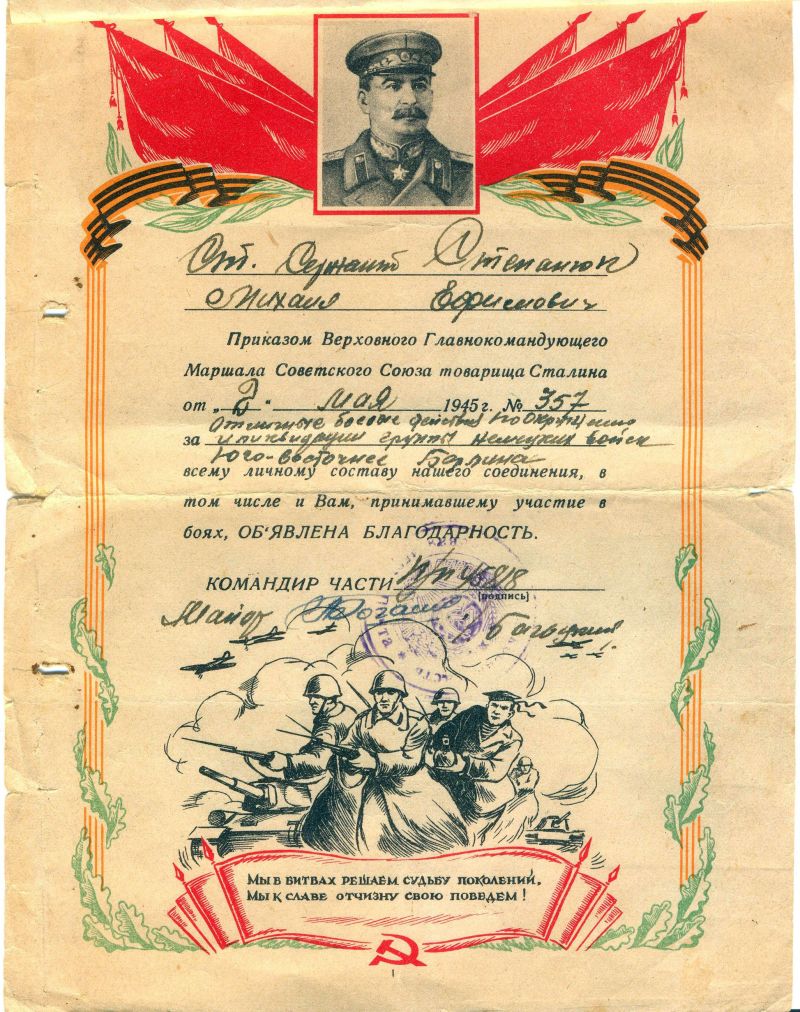 Ст. Сержант Степанюк
Михаил Ефимович
Приказом Верховного Главнокомандующего
Маршала Советского Союза товарища Сталина
от „2“ мая 1945 г. № 357
за отличные боевые действия по окружению
и ликвидации группы немецких войск
Юго-восточнее Берлина
всему личному составу нашего соединения, в
том числе и Вам, принимавшему участие в
боях, ОБ'ЯВЛЕНА БЛАГОДАРНОСТЬ.
КОМАНДИР ЧАСТИ
(подпись)
Майор
МЫ В БИТВАХ РЕШАЕМ СУДЬБУ ПОКОЛЕНИЙ,
МЫ К СЛАВЕ ОТЧИЗНУ СВОЮ ПОВЕДЕМ!